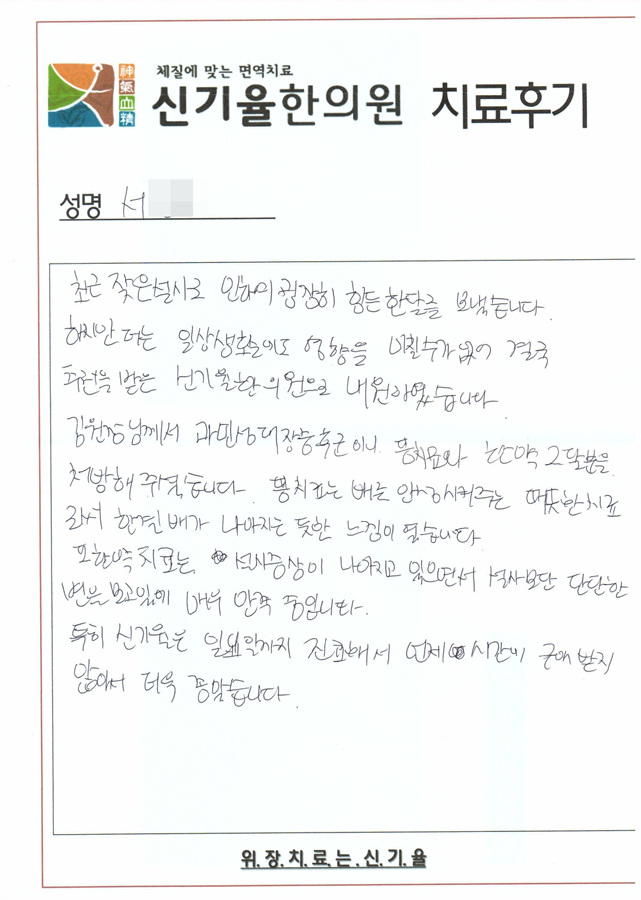 神氣血精
체질에 맞는 면역치료
신기율한의원 치료후기
성명 서
최근 잦은설사로 인하여 굉장히 힘든 한달을 보냈습니다.
하지만 더는 일상생활에도 영향을 미칠수가 없어 결국
추천을 받은 신기율한의원으로 내원하였습니다
김원장님께서 과민성대장증후군이니 뜸치료와 한약 2달분을
처방해 주셨습니다. 뜸치료는 배를 안정시켜주는 따뜻한치료
라서 한결 배가 나아지는 듯한 느낌이 었습니다
또한약치료는 설사증상이 나아지고 있으면서 설사보단 단단한
변을 보고있에 매우 만족 중입니다.
특히 신기율은 일요일까지 진료해서 언제 시간이 구애 받지
않아서 더욱 좋았습니다.
위.장.치.료.는.신.기.율